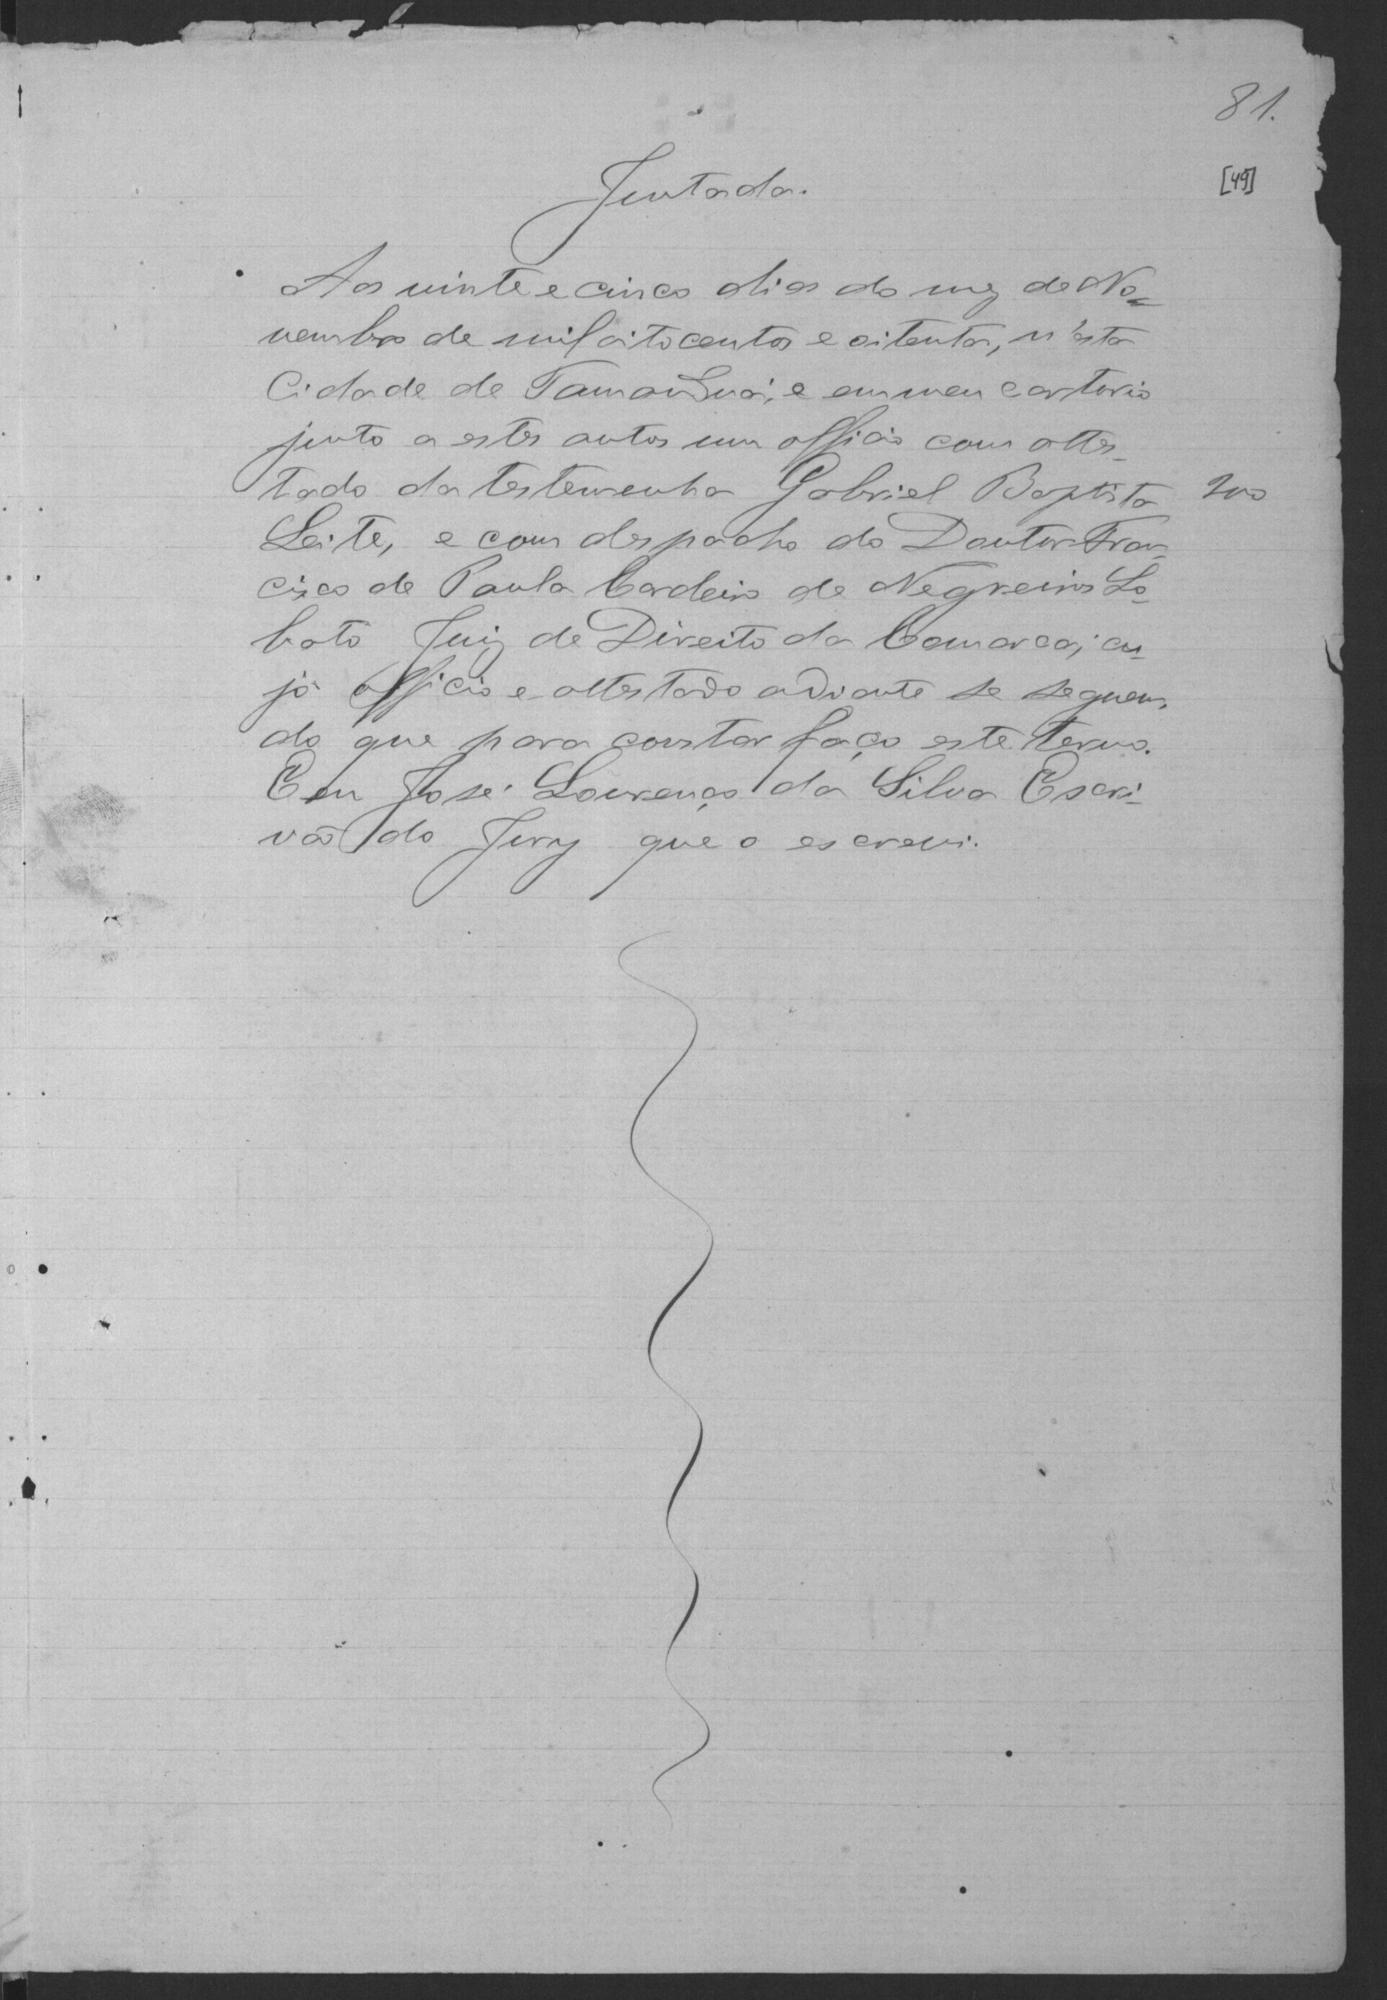 81.
[49]
Juntada.
Aos vinte e cinco dias do mez de No=
vembro de mil oitocentos e oitenta, n'esta
Cidade de Tamanduá, e em meu cartorio
junto a estes autos um officio com attes_
tado da testemunha Gabriel Baptista 200
Leite, e com despacho do Doutor Fran=
cisco de Paula Cordeiro de Negreiros Lo=
bato Juiz de Direito da Comarca; cu_
jo officio e attestado adiante se seguem,
do que para constar faço este termo.
Eu José Lourenço da Silva Escri-
vão do Jury que o escrevi.